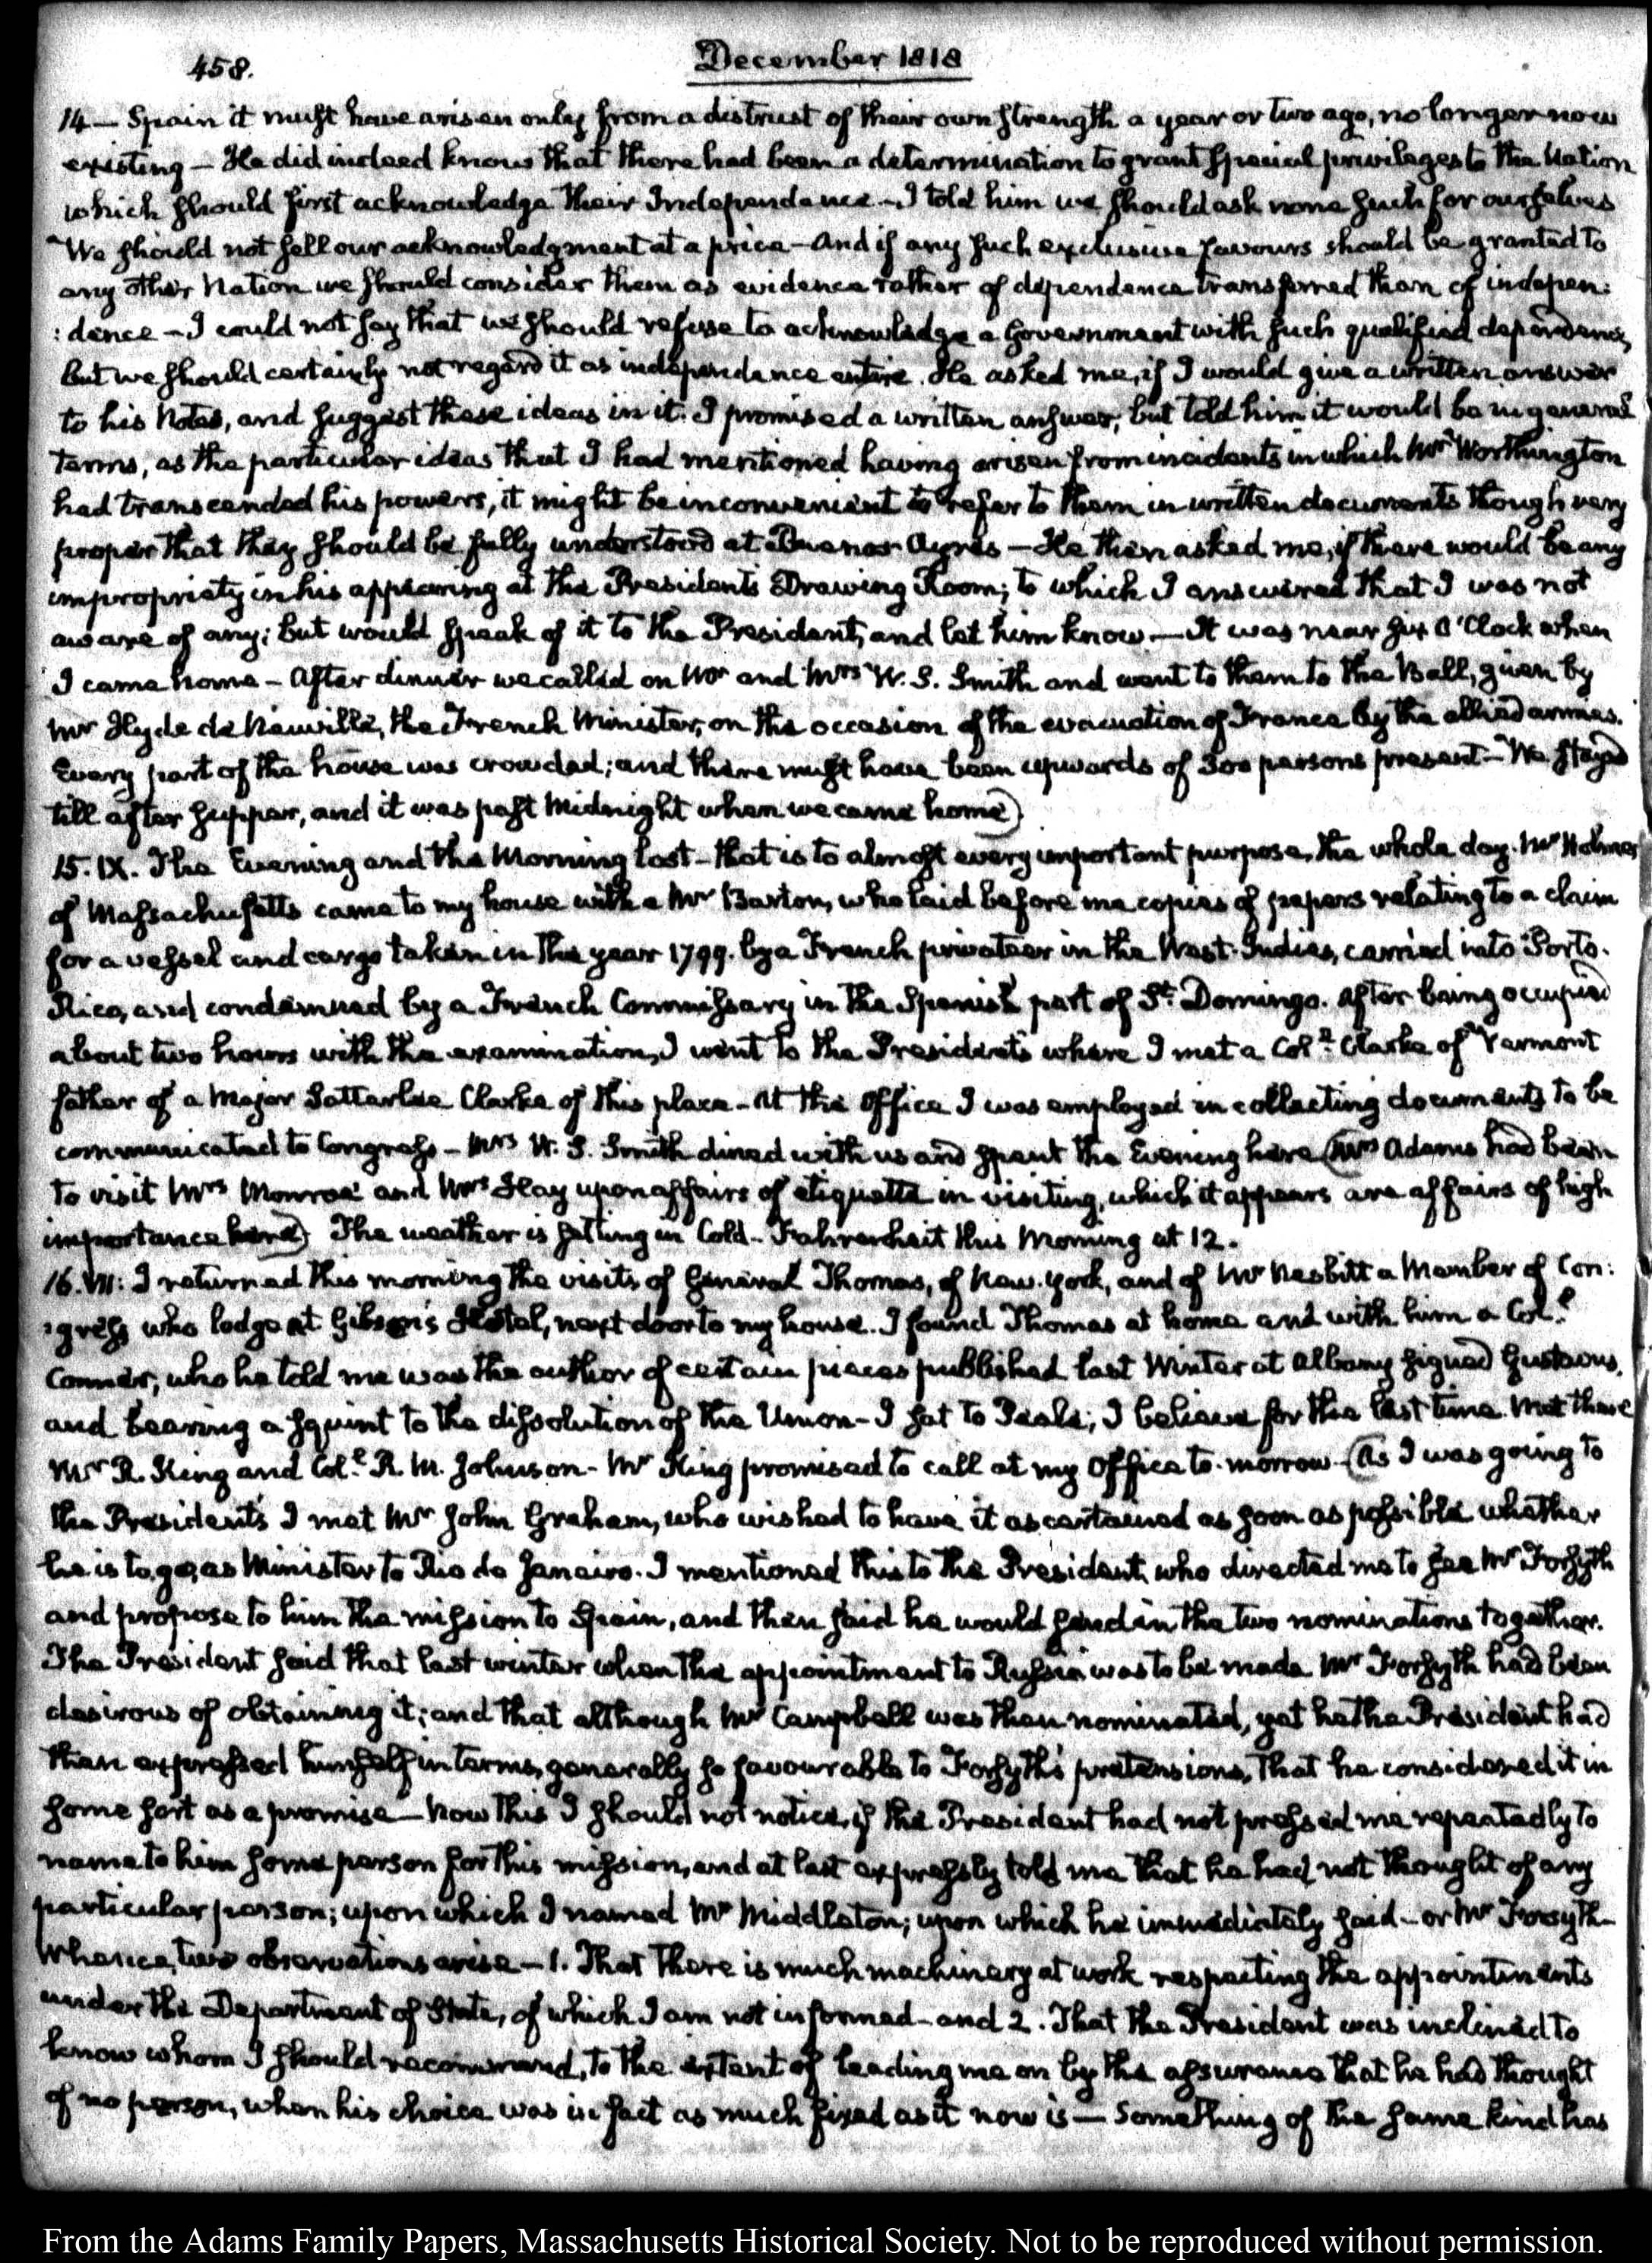 458.
December 1818
14 — Spain it must have arisen only from a distrust of their own strength a year or two ago, no longer now
existing — He did indeed know that there had been a determination to grant special privileges to the Nation
which should first acknowledge their Independence — I told him we should ask none such for ourselves
We should not sell our acknowledgment at a price — And if any such exclusive favours should be granted to
any other Nation we should consider them as evidence rather of dependence transferred than of indepen:
:dence — I could not say that we should refuse to acknowledge a Government with such qualified dependence,
but we should certainly not regard it as independence entire. He asked me, if I would give a written answer
to his Notes, and suggest these ideas in it. I promised a written answer, but told him it would be in general
terms, as the particular ideas that I had mentioned having arisen from incidents in which Mr Worthington
had transcended his powers, it might be inconvenient to refer to them in written documents though very
proper that they should be fully understood at Buenos Ayres — He then asked me, if there would be any
impropriety in his appearing at the President's Drawing Room; to which I answered that I was not
aware of any; but would speak of it to the President, and let him know. — It was near six O'Clock when
I came home — After dinner we called on Mr and Mrs W. S. Smith and went to them to the Ball, given by
Mr Hyde de Neuville, the French Minister, on the occasion of the evacuation of France by the allied armies.
Every part of the house was crowded; and there must have been upwards of 300 persons present — We stayed
till after supper, and it was past Midnight when we came home)
15. IX. The Evening and the Morning lost — that is to almost every important purpose, the whole day. Mr Holmes
of Massachusetts came to my house with a Mr Barton, who laid before me copies of papers relating to a claim
for a vessel and cargo taken in the year 1799. by a French privateer in the West-Indies, carried into Porto-
Rico, and condemned by a French Commissary in the Spanish part of St. Domingo. After being occupied
about two hours with the examination, I went to the President's where I met a Coll. Clarke of Vermont
father of a Major Satterlee Clarke of this place — At the Office I was employed in collecting documents to be
communicated to Congress — Mrs W. S. Smith dined with us and spent the Evening here (Mrs Adams had been
to visit Mrs Monroe and Mrs Hay upon affairs of etiquette in visiting, which it appears are affairs of high
importance here) The weather is setting in Cold — Fahrenheit this Morning at 12.
16. VII: I returned this morning the visits of General Thomas, of New-York, and of Mr Nesbitt a Member of Con:
:gress who lodge at Gibson's Hotel, next door to my house. I found Thomas at home and with him a Coll.
Conner, who he told me was the author of certain pieces published last Winter at Albany signed Gustavus,
and bearing a squint to the dissolution of the Union — I sat to Peale; I believe for the last time. Met there
Mr R. King and Coll. R. M. Johnson — Mr King promised to call at my Office to-morrow (As I was going to
the President's I met Mr John Graham, who wished to have it ascertained as soon as possible whether
he is to go, as Minister to Rio de Janeiro. I mentioned this to the President, who directed me to see Mr Forsyth
and propose to him the mission to Spain, and then said he would send in the two nominations together.
The President said that last winter when the appointment to Russia was to be made Mr Forsyth had been
desirous of obtaining it; and that although Mr Campbell was then nominated, yet he the President had
then expressed himself in terms, generally so favourable to Forsyth's pretensions, that he considered it in
some sort as a promise — Now this I should not notice, if the President had not pressed me repeatedly to
name to him some person for this mission, and at last expressly told me that he had not thought of any
particular person; upon which I named Mr Middleton; upon which he immediately said — or Mr Forsyth —
Whence, two observations arise — 1. That there is much machinery at work respecting the appointments
under the Department of State, of which I am not informed — and 2. That the President was inclined to
know whom I should recommend, to the extent of leading me on by the assurance that he had thought
of no person, when his choice was in fact as much fixed as it now is — Something of the same kind has
From the Adams Family Papers, Massachusetts Historical Society. Not to be reproduced without permission.